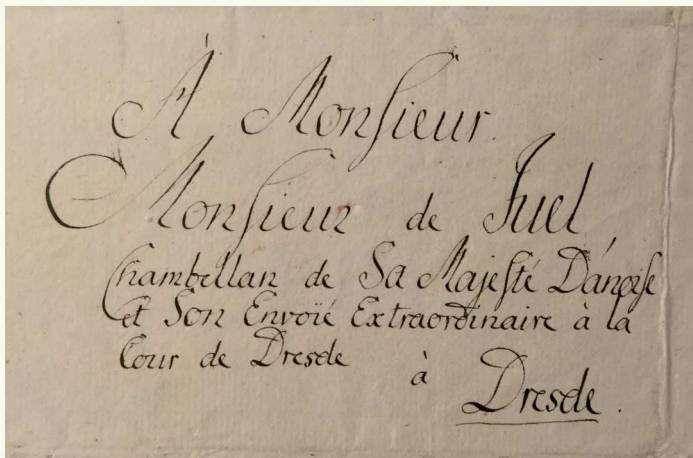 À Monsieur.
Monsieur de Juel,
Chambellan de Sa Majesté Danoise
et Son Envoïé Extraordinaire à la
Cour de Dresde
à
Dresde.